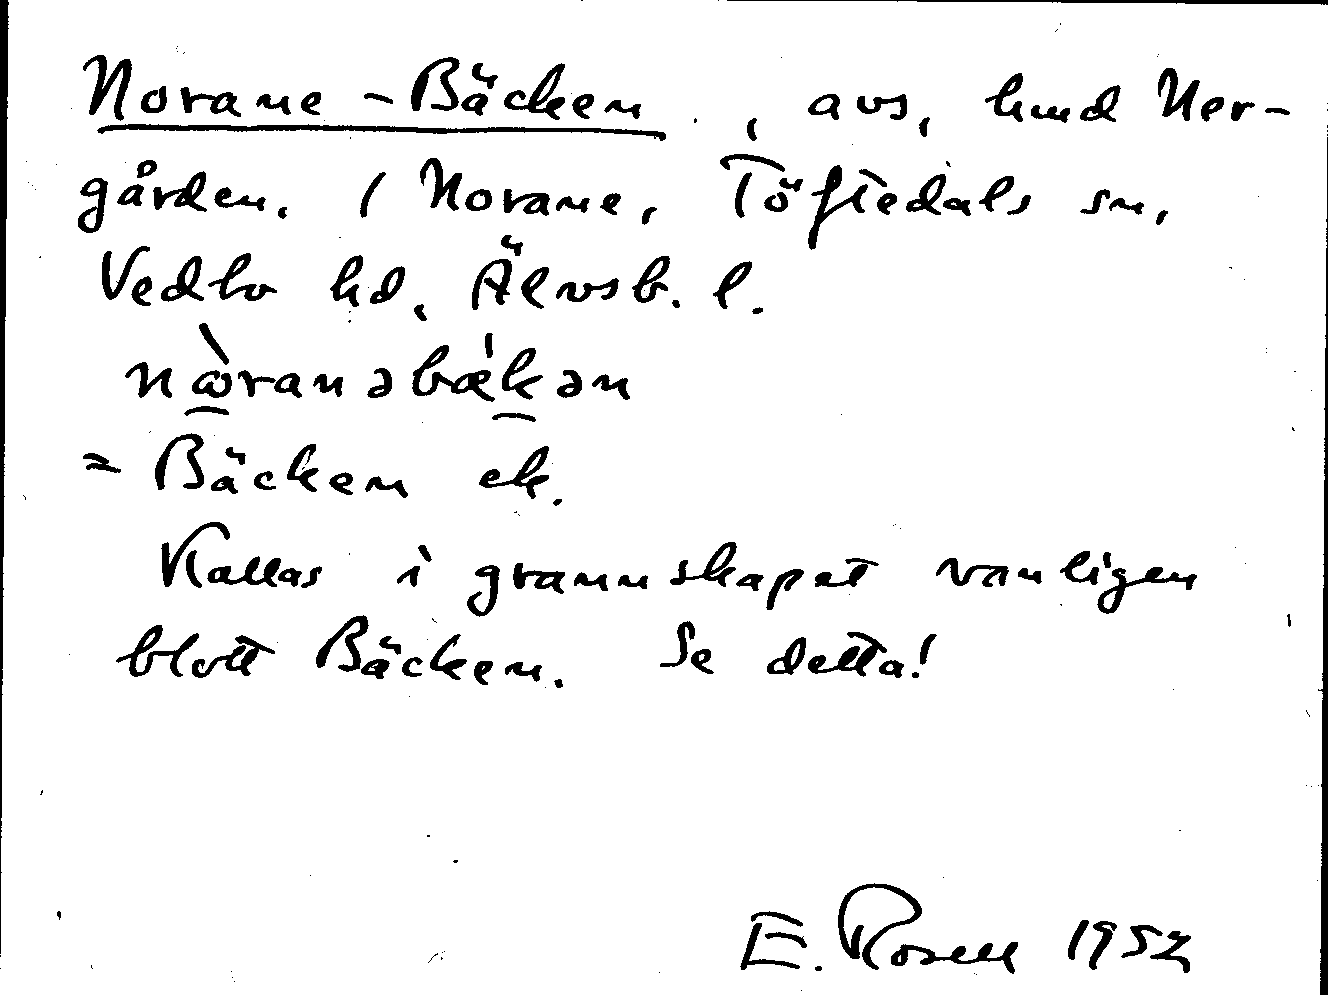 Norane-Bäcken, avs, hmd Ner-
gården. / Norane, Töftedals sn,
Vedbo hd, Älvsb. l.
nòranəbækən
= Bäcken ek.
Kallas i grannskapet vanligen
blott Bäcken. Se detta!
E. Rosell 1952